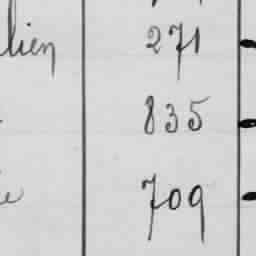 lien 271
835
709